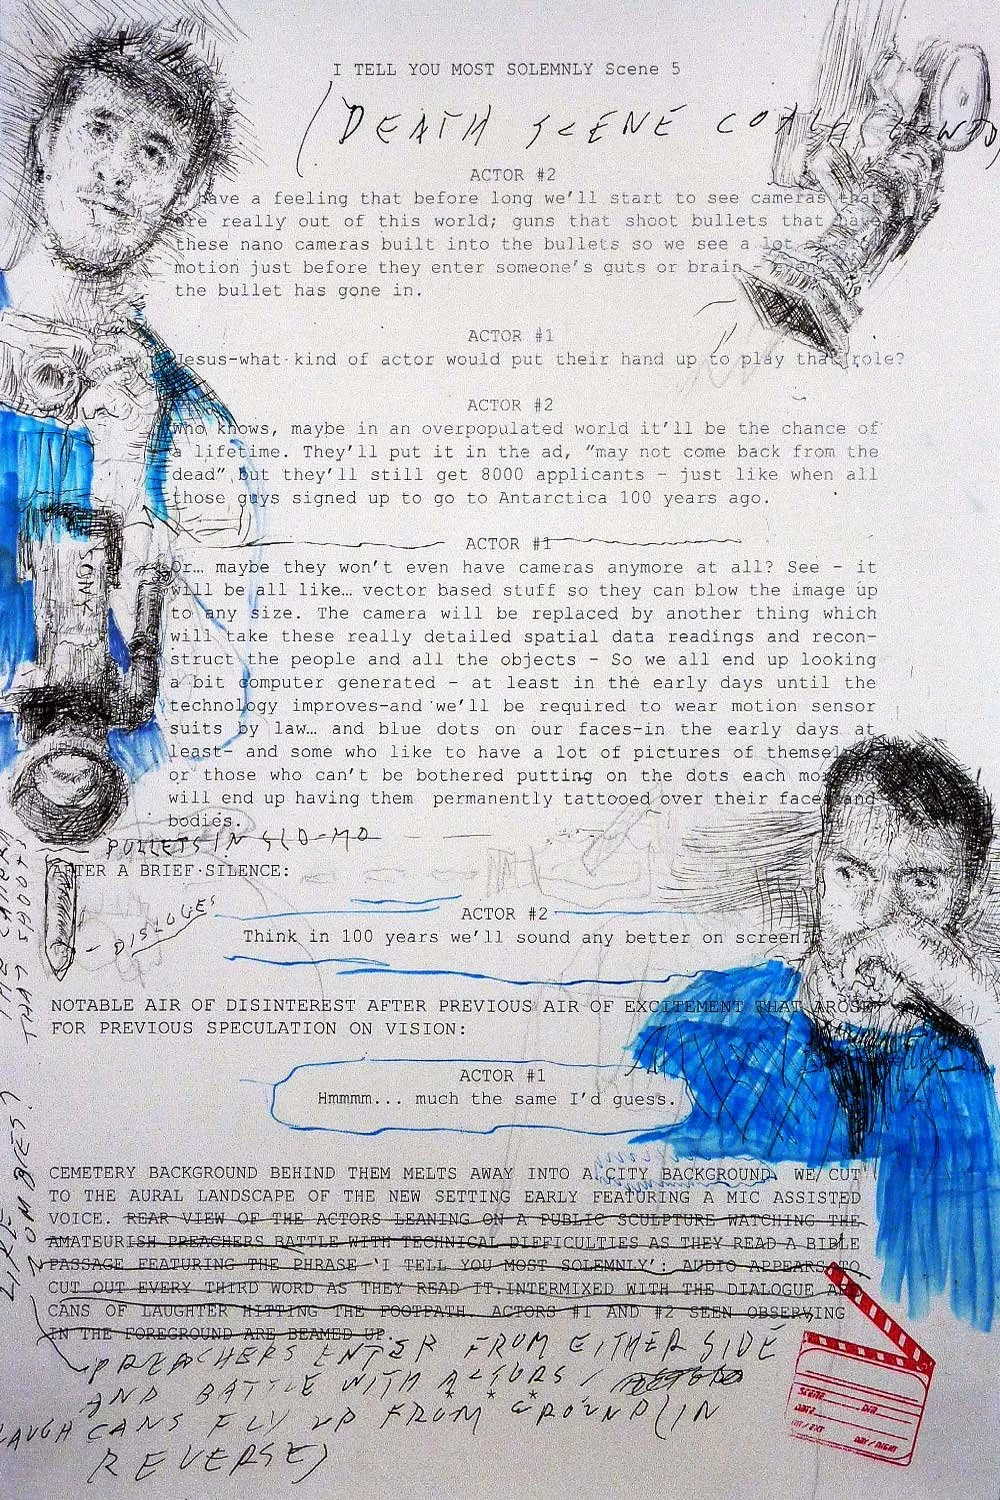 I TELL YOU MOST SOLEMNLY Scene 5
(DEATH SCENE
ACTOR #2
I have a feeling that before long we’ll start to see cameras that
are really out of this world; guns that shoot bullets that have
these nano cameras built into the bullets so we see a lot of
motion just before they enter someone’s guts or brain –
the bullet has gone in.
ACTOR #1
Jesus-what kind of actor would put their hand up to play that role?
ACTOR #2
Who knows, maybe in an overpopulated world it’ll be the chance of
a lifetime. They’ll put it in the ad, “may not come back from the
dead” but they’ll still get 8000 applicants – just like when all
those guys signed up to go to Antarctica 100 years ago.
ACTOR #1
Or… maybe they won’t even have cameras anymore at all? See – it
will be all like… vector based stuff so they can blow the image up
to any size. The camera will be replaced by another thing which
will take these really detailed spatial data readings and recon-
struct the people and all the objects – So we all end up looking
a bit computer generated – at least in the early days until the
technology improves-and we’ll be required to wear motion sensor
suits by law… and blue dots on our faces-in the early days at
least- and some who like to have a lot of pictures of themselves
or those who can’t be bothered putting on the dots each morning
will end up having them permanently tattooed over their faces and
bodies.
SONY
BULLETS IN SLO-MO
AFTER A BRIEF SILENCE:
- DISLOGES
ACTOR #2
Think in 100 years we’ll sound any better on screen?
NOTABLE AIR OF DISINTEREST AFTER PREVIOUS AIR OF EXCITEMENT THAT AROSE
FOR PREVIOUS SPECULATION ON VISION:
ACTOR #1
Hmmmm... much the same I’d guess.
THAT SHOOTS
LIKE
ZOOMBIES?
CEMETERY BACKGROUND BEHIND THEM MELTS AWAY INTO A CITY BACKGROUND. WE CUT
TO THE AURAL LANDSCAPE OF THE NEW SETTING EARLY FEATURING A MIC ASSISTED
VOICE. REAR VIEW OF THE ACTORS LEANING ON A PUBLIC SCULPTURE WATCHING THE
AMATEURISH PREACHERS BATTLE WITH TECHNICAL DIFFICULTIES AS THEY READ A BIBLE
PASSAGE FEATURING THE PHRASE ‘I TELL YOU MOST SOLEMNLY’: AUDIO APPEARS TO
CUT OUT EVERY THIRD WORD AS THEY READ IT.INTERMIXED WITH THE DIALOGUE ARE
CANS OF LAUGHTER HITTING THE FOOTPATH. ACTORS #1 AND #2 SEEN OBSERVING
IN THE FOREGROUND ARE BEAMED UP.
PREACHERS ENTER FROM EITHER SIDE
AND BATTLE WITH ACTORS /
LAUGH CANS FLY UP FROM GROUND (IN
REVERSE)
SCENE
DATE
INT/EXT
DAY/NIGHT